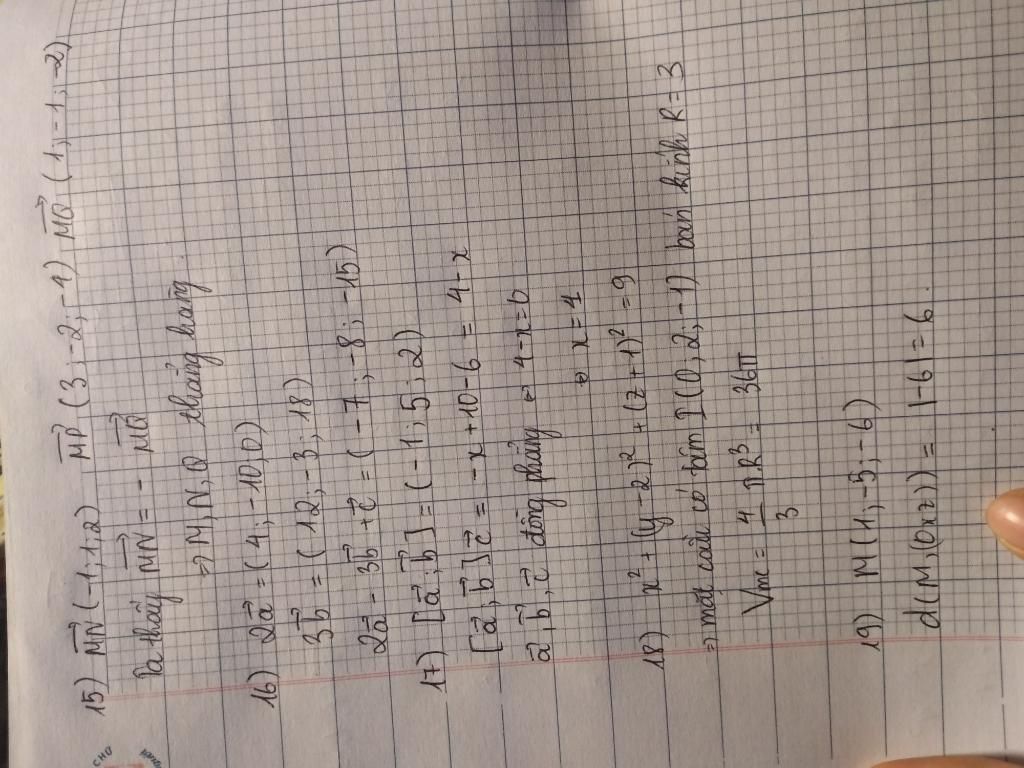 15) MN→ (-1; 1; 2) MP→ (3; -2; -1) MQ→ (1; -1; -2)
Ta thấy MN→ = - MQ→
=> M, N, Q thẳng hàng.
16) 2a→ = (4; -10; 0)
3b→ = (12; -3; 18)
2a→ - 3b→ + c→ = (-7; -8; -15)
17) [a→; b→] = (-1; 5; 2)
[a→; b→]c→ = -x + 10 - 6 = 4 - x
a→, b→, c→ đồng phẳng ⇔ 4 - x = 0
⇔ x = 4
18) x² + (y - 2)² + (z + 1)² = 9
=> mặt cầu có tâm I (0; 2; -1) bán kính R = 3
Vmc = 4/3 πR³ = 36π
19) M (1; -5; -6)
d(M; (Oxz)) = |-6| = 6.